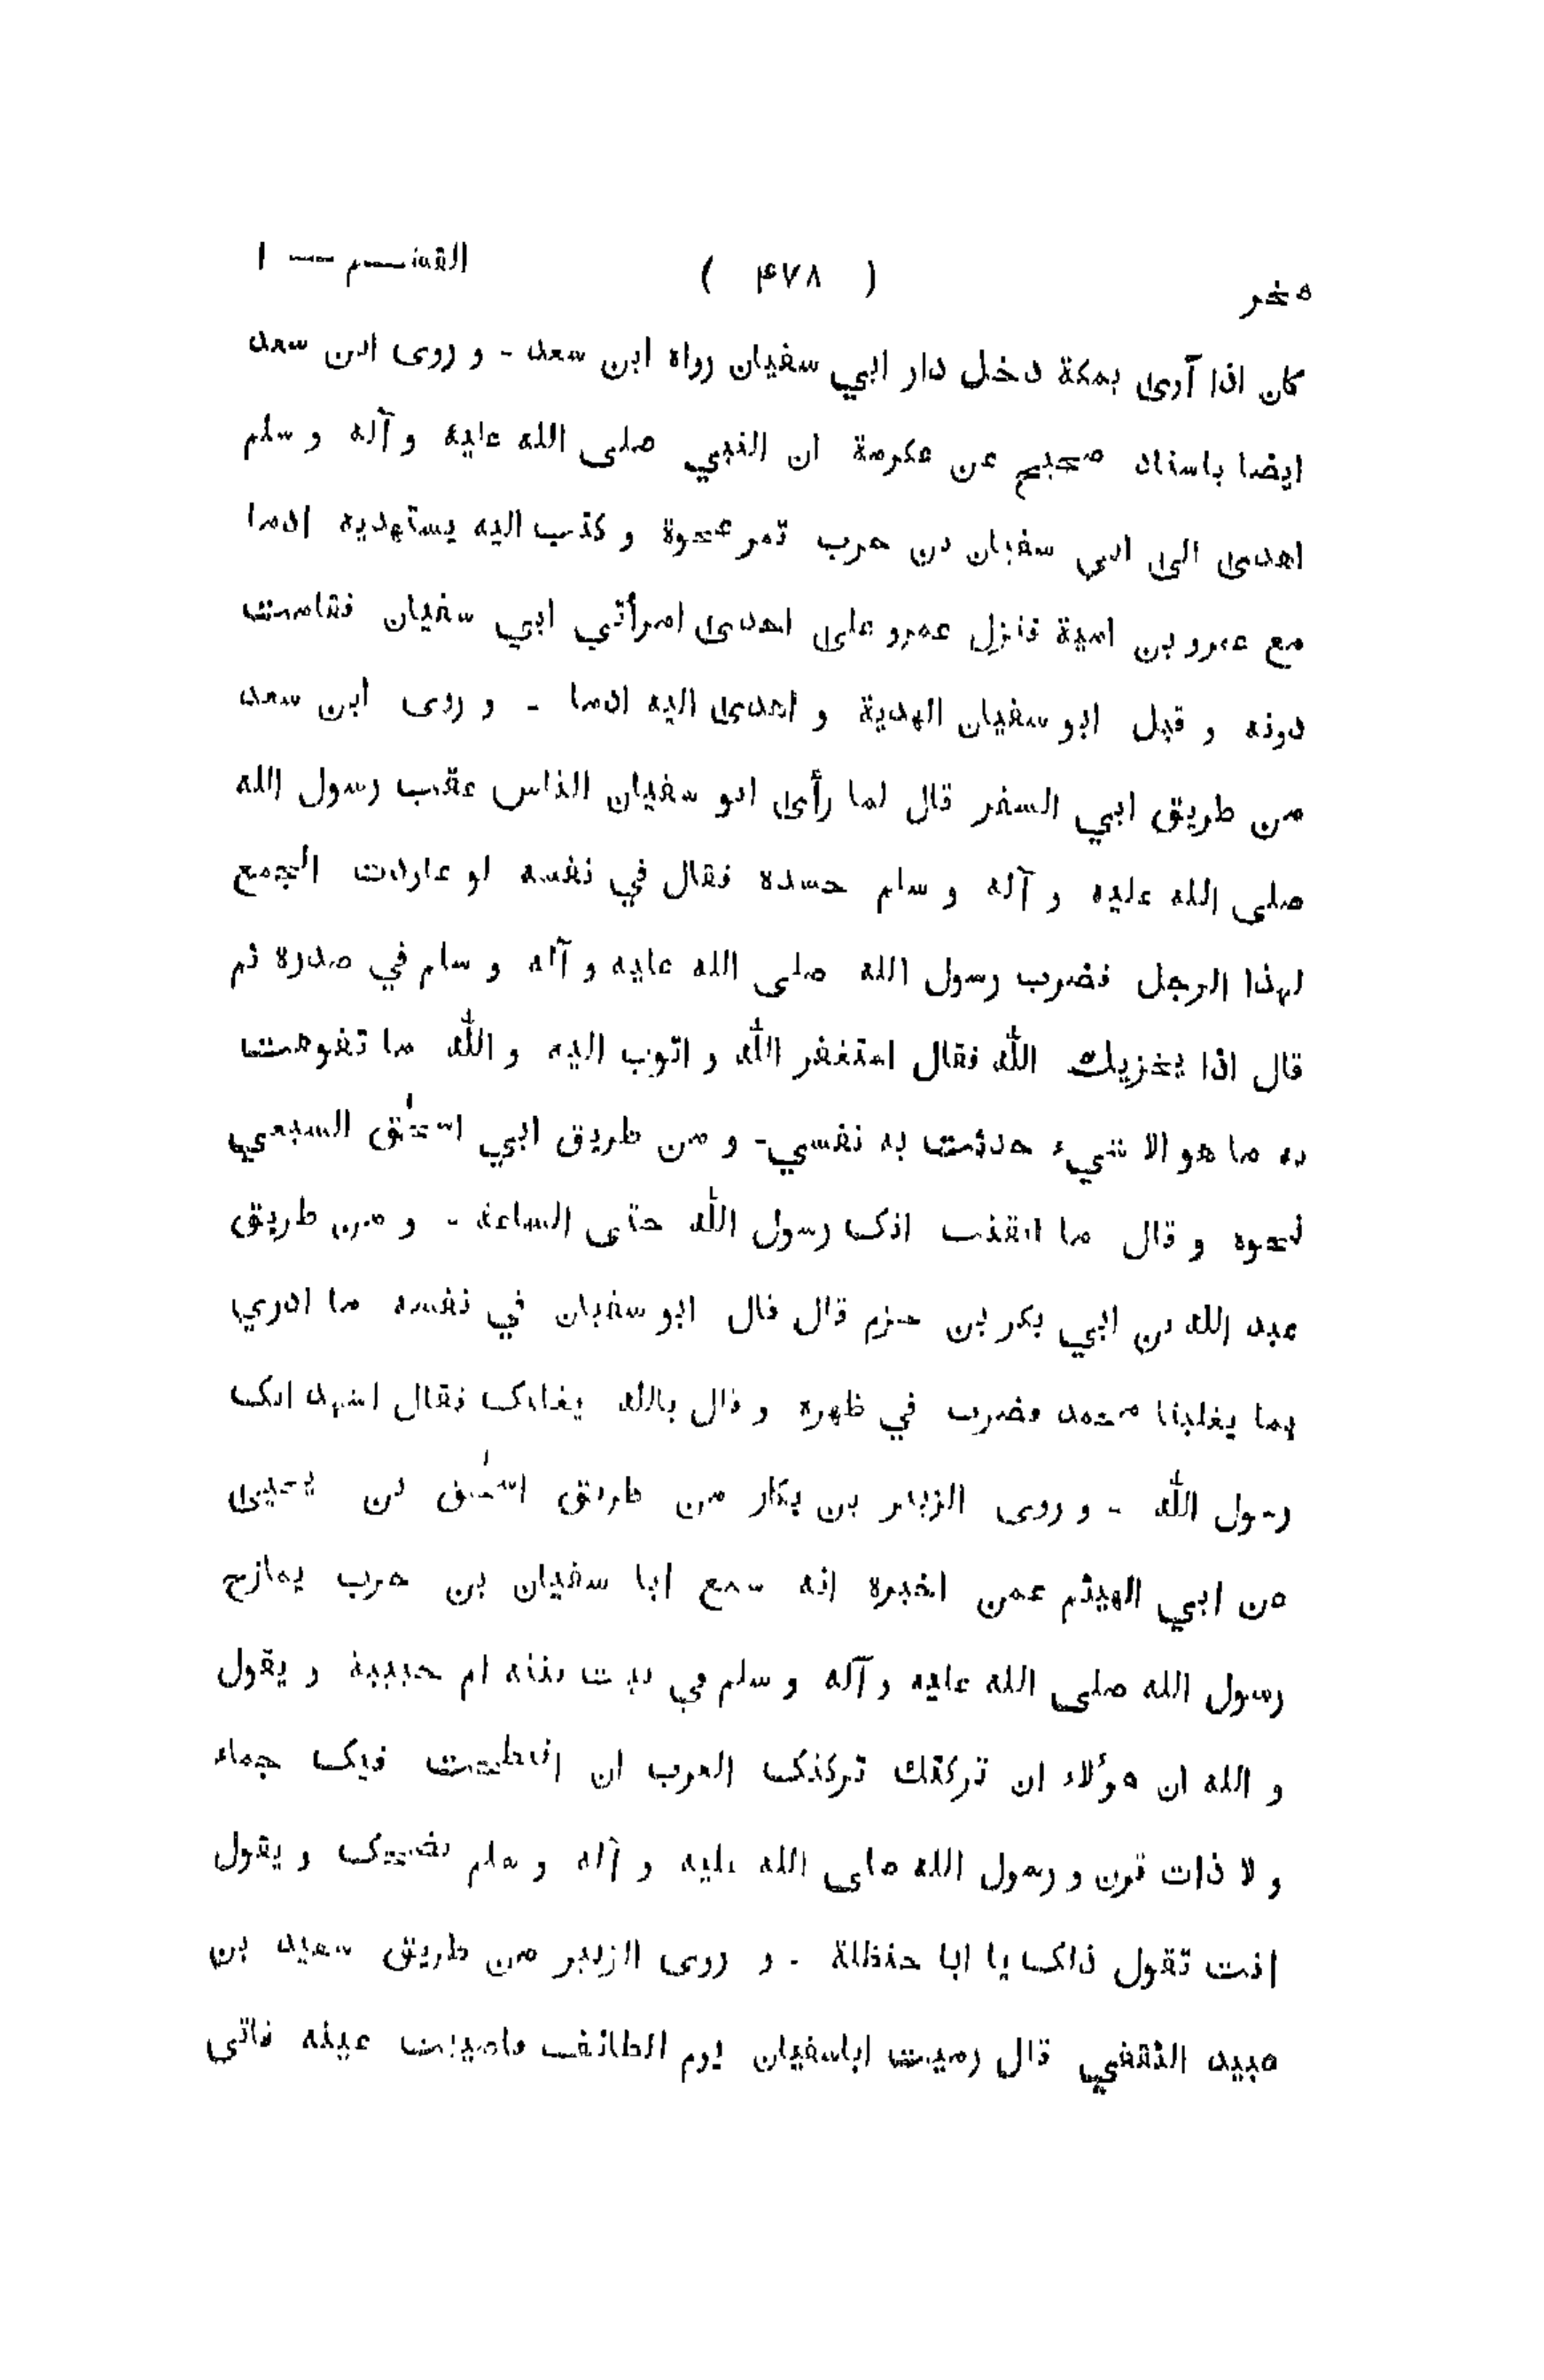 صخر ( ۴۷۸ ) القسم — ١
كان اذا آوى بمكة دخل دار ابي سفيان رواه ابن سعد - و روى ابن سعد
ايضا باسناد صحيح عن عكرمة ان النبي صلى الله عليه و آله و سلم
اهدى الى ابي سفيان بن حرب تمر عجوة و كتب اليه يستهديه ادما
مع عمرو بن امية فنزل عمرو على احدى امرأتي ابي سفيان فقامت
دونه و قبل ابو سفيان الهدية و اهدى اليه ادما - و روى ابن سعد
من طريق ابي السفر قال لما رأى ابو سفيان الناس عقب رسول الله
صلى الله عليه و آله و سلم حسده فقال في نفسه لو عاودت الجمع
لهذا الرجل فضرب رسول الله صلى الله عليه و آله و سلم في صدره ثم
قال اذا يخزيك الله فقال استغفر الله و اتوب اليه و الله ما تفوهت
به ما هو الا شيء حدثت به نفسي - و من طريق ابي اسحٰق السبعي
نحوه و قال ما ايقنت انك رسول الله حتى الساعة - و من طريق
عبد الله بن ابي بكر بن حزم قال قال ابو سفيان في نفسه ما ادري
بما يغلبنا محمد فضرب في ظهره و قال بالله يغلبك فقال اشهد انك
رسول الله - و روى الزبير بن بكار من طريق اسحٰق بن يحيى
عن ابي الهيثم عمن اخبره انه سمع ابا سفيان بن حرب يمازح
رسول الله صلى الله عليه و آله و سلم في بيت بنته ام حبيبة و يقول
و الله ان هؤلاء ان تركتك تركتك العرب ان انتطحت فيك جماء
و لا ذات قرن و رسول الله صلى الله عليه و آله و سلم يضحك و يقول
انت تقول ذاك يا ابا حنظلة - و روى الزبير من طريق سعيد بن
عبيد الثقفي قال رميت اباسفيان يوم الطائف فاصيبت عينه فاتى